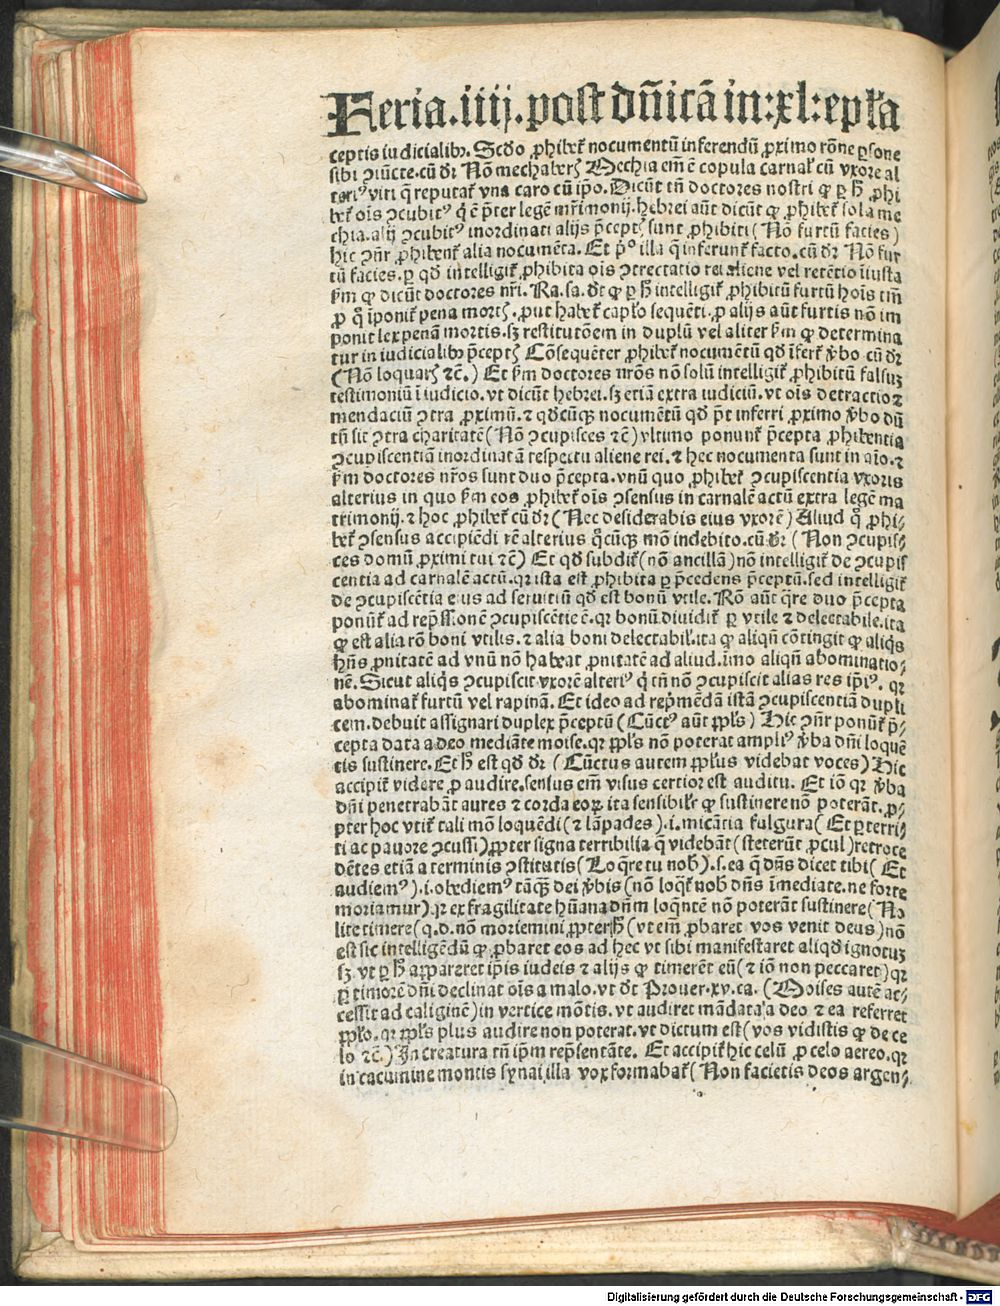 Feria.iiij.post dn̄icā in:xl:ep̄la
ceptis iudicialibꝰ. Scd̄o ꝓhibet᷑ nocumentū inferendū ꝓximo rōne ꝑsone
sibi ꝯiūcte.cū dr̄ Nō mechaberꝭ Mechia em̄ ē copula carnal᷑ cū vxore al
teriꝰ viri q̄ reputat᷑ vna caro cū ip̄o. Dicūt tn̄ doctores nostri ꝙ ꝑ ħ ꝓhi
bet᷑ oīs ꝯcubitꝰ q̇ ē p̄ter legē mr̄imonij. hebrei aūt dicūt ꝙ ꝓhibet᷑ sola me
chia.alij ꝯcubitꝰ inordinati alijs p̄ceptꝭ sunt ꝓhibiti (Nō furtū facies)
hic ꝯn̄r ꝓhibent᷑ alia nocumēta. Et pͦ illa q̄ inferunt᷑ facto.cū dr̄ Nō fur
tū facies.ꝑ qd̄ intelligit᷑ ꝓhibita oīs ꝯtrectatio rei aliene vel retētio iīusta
ẜm ꝙ dicūt doctores nr̄i. Ra.sa.dt̄ ꝙ ꝑ ħ intelligit᷑ ꝓhibitū furtū hoīs tm̄
ꝓ q̇ īponit᷑ pena mortꝭ.ꝓut habet᷑ capl̄o sequēti.ꝓ alijs aūt furtis nō im
ponit lex penā mortis.sꝫ restitutōem in duplū vel aliter ẜm ꝙ determina
tur in iudicialibꝰ p̄ceptꝭ Cōsequēter ꝓhibet᷑ nocumētū qd̄ īfert᷑ v̄bo cū dr̄
(Nō loquarꝭ ⁊c̄.) Et ẜm doctores nr̄os nō solū intelligit᷑ ꝓhibitū falsuꝫ
testimoniū ī iudicio.vt dicūt hebrei.sꝫ etiā extra iudiciū.vt oīs detractio ⁊
mendaciū ꝯtra ꝓximū.⁊ qd̄cūqꝫ nocumētū qd̄ p̄t inferri ꝓximo v̄bo dū
tn̄ sit ꝯtra charitatē (Nō ꝯcupisces ⁊c̄) vltimo ponunt᷑ p̄cepta ꝓhibentia
ꝯcupiscentiā inordinatā respectu aliene rei.⁊ hec nocumenta sunt in aīo.⁊
ẜm doctores nr̄os sunt duo p̄cepta.vnū quo ꝓhibet᷑ ꝯcupiscentia vxoris
alterius in quo ẜm eos ꝓhibet᷑ oīs ꝯsensus in carnalē actū extra legē ma
trimonij.⁊ hoc ꝓhibet᷑ cū dr̄ (Nec desiderabis eius vxorē) Aliud q̊ ꝓhi⸗
bet᷑ ꝯsensus accipiēdi rē alterius q̊cūqꝫ mō indebito.cū dr̄ (Non ꝯcupis⸗
ces domū ꝓximi tui ⁊c̄) Et qd̄ subdit᷑ (nō ancillā) nō intelligit᷑ de ꝯcupis
centia ad carnalē actū.qꝛ ista est ꝓhibita ꝑ p̄cedens p̄ceptū.sed intelligit᷑
de ꝯcupiscētia eius ad seruitiū qd̄ est bonū vtile. Rō aūt q̄re duo p̄cepta
ponūt᷑ ad rep̄ssionē ꝯcupiscētie ē.qꝛ bonū diuidit᷑ ꝑ vtile ⁊ delectabile.ita
ꝙ est alia rō boni vtilis.⁊ alia boni delectabil᷑.ita ꝙ aliqn̄ cōtingit ꝙ aliq̇s
hn̄s ꝓnitatē ad vnū nō habeat ꝓnitatē ad aliud.īmo aliqn̄ abominatio⸗
nē. Sicut aliq̇s ꝯcupiscit vxorē alteriꝰ q̇ tn̄ nō ꝯcupiscit alias res ip̄iꝰ. qꝛ
abominat᷑ furtū vel rapinā. Et ideo ad rep̄mēdā istā ꝯcupiscentiā dupli
cem.debuit assignari duplex p̄ceptū (Cūctꝰ aūt ppl̄s) Hic ꝯn̄r ponūt᷑ p̄⸗
cepta data a deo mediāte moise.qꝛ ppl̄s nō poterat ampliꝰ v̄ba dn̄i loquē
tis sustinere. Et ħ est qd̄ dr̄ (Cūctus autem ppl̄us videbat voces) Hic
accipit᷑ videre ꝓ audire.sensus em̄ visus certior est auditu. Et iō qꝛ v̄ba
dn̄i penetrabāt aures ⁊ corda eoꝝ ita sensibilr̄ ꝙ sustinere nō poterāt.ꝓ⸗
pter hoc vtit᷑ tali mō loquēdi (⁊ lāpades).i.micātia fulgura (Et ꝑterri⸗
ti ac pauore ꝯcussi) ꝓpter signa terribilia q̄ videbāt (steterūt ꝓcul) retroce
dētes etiā a terminis ꝯstitutis (Loq̄re tu nob̄).s.ea q̄ dn̄s dicet tibi (Et
audiemꝰ).i.obediemꝰ tāqꝫ dei v̄bis (nō loq̄t᷑ nob̄ dn̄s īmediate.ne forte
moriamur).qꝛ ex fragilitate hūana dn̄m loq̄ntē nō poterāt sustinere (No
lite timere (q.d.nō moriemini ꝓpter ħ (vt em̄ ꝓbaret vos venit deus) nō
est sic intelligēdū ꝙ ꝓbaret eos ad hec vt sibi manifestaret aliqd̄ ignotuꝫ
sꝫ vt ꝑ ħ appareret ip̄is iudeis ⁊ alijs ꝙ timerēt eū (⁊ iō non peccaret) qꝛ
ꝑ timorē dn̄i declinat oīs a malo.vt dt̄ Prouer.xv.ca. (Moises autē ac⸗
cessit ad caliginē) in vertice mōtis.vt audiret mādata a deo ⁊ ea referret
ppl̄o.qꝛ ppl̄s plus audire non poterat.vt dictum est (vos vidistis ꝙ de ce
lo ⁊c̄.) In creatura tn̄ ip̄m rep̄sentāte. Et accipit᷑ hic celū ꝓ celo aereo.qꝛ
in cacumine montis synai illa vox formabat᷑ (Non facietis deos argen⸗
Digitalisierung gefördert durch die Deutsche Forschungsgemeinschaft - DFG